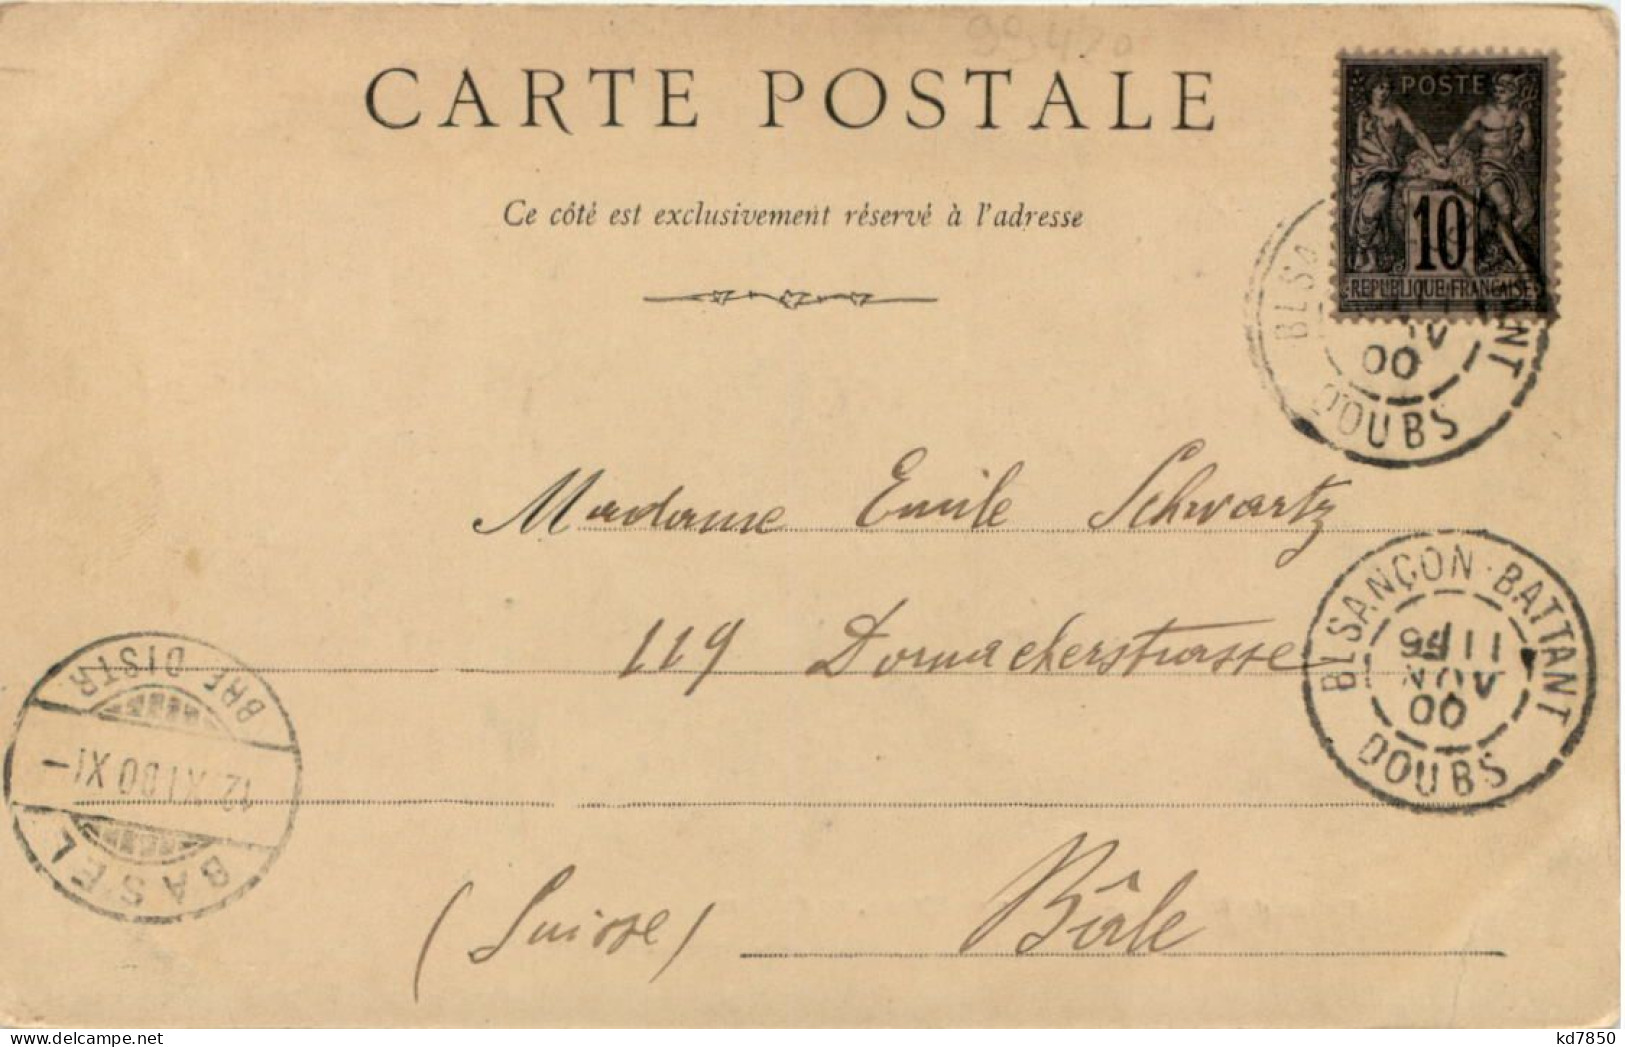 99,420
CARTE POSTALE
Ce côté est exclusivement réservé à l'adresse
POSTE
10
REPUBLIQUE FRANÇAISE
00
DOUBS
Madame Emile Schwartz
119 Dornacherstrasse
(Suisse) Bâle
BESANÇON - BATTANT
11
NOV
00
DOUBS
BRE DISTR.
12 XI 00 XI-
BASEL
kd7850